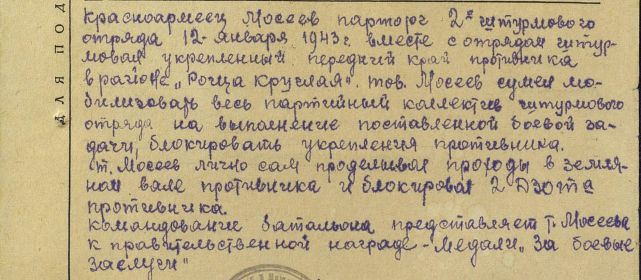 Красноармеец Мосеев парторг 2го штурмового
отряда 12 января 1943г. вместе с отрядом штур-
мовал укрепленный передний край противника
в районе „Роща Круглая". тов. Мосеев сумел мо-
билизовать весь партийный коллектив штурмового
отряда на выполнение поставленной боевой за-
дачи, блокировать укрепления противника.
т. Мосеев лично сам проделывал проходы в земля-
ном вале противника и блокировал 2 Дзота
противника.
Командование батальона представляет т. Мосеева
к правительственной награде - медали „За боевые
заслуги"
ДЛЯ ПОД